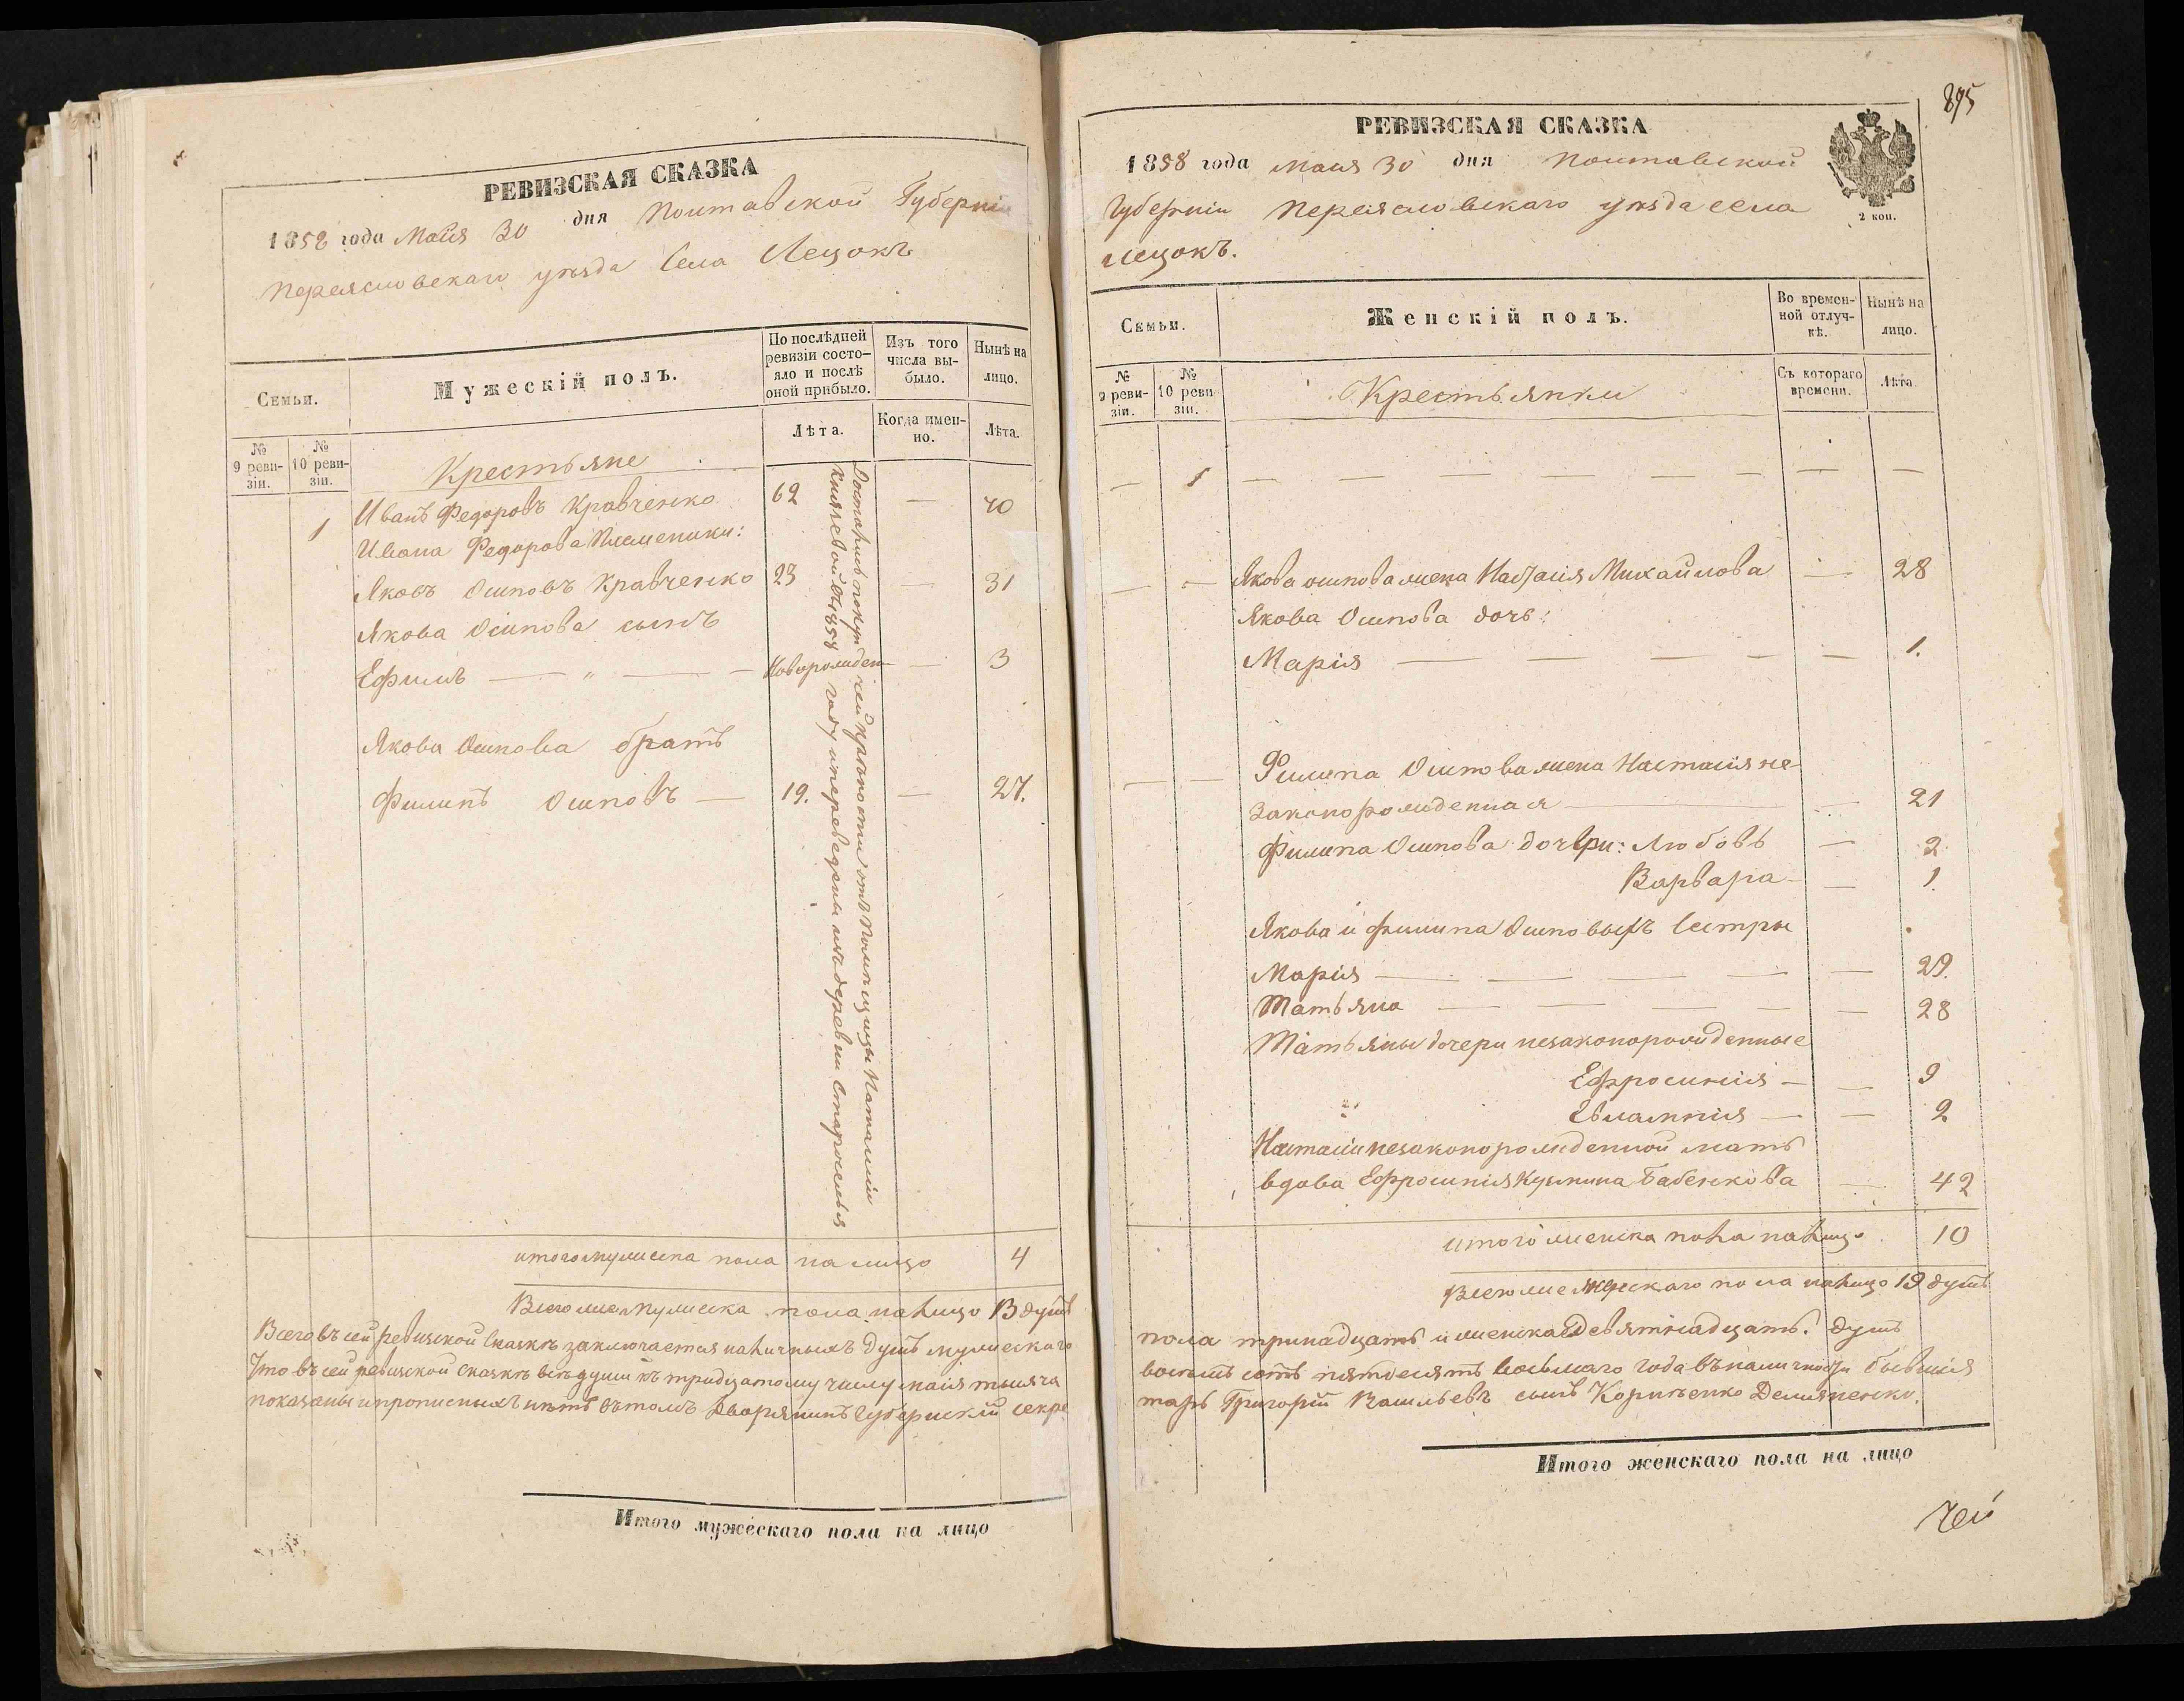 РЕВИЗСКАЯ СКАЗКА
1858 года Маия 30 дня Полтавской Губерніи
Переясловскаго уѣзда Села Лецокъ
Семьи.
Мужескій полъ.
По послѣдней ревизіи состо-
яло и послѣ
оной прибыло.
Изъ того
числа вы-
было.
Нынѣ на
лицо.
№
9 реви-
зіи.
№
10 реви-
зіи.
Лѣта.
Когда имен-
но.
Лѣта.
Крестьяне
1 Иванъ Федоровъ Кравченко 62 — 70
Ивана Федорова Племеники:
Яковъ Осиповъ Кравченко 23 — 31
Якова Осипова сынъ
Ефимъ — " — — Новорожден — 3
Якова Осипова братъ
Филипъ Осиповъ — 19. — 27.
Достались покупчей крѣпости отъ Помѣщицы Наталіи
Князевой въ 1858 году и переведены изъ деревни Староселья
итого мужеска пола на лицо 4
Всего же мужеска пола налицо 13 душъ
Всего въ сей ревизской Сказкѣ заключается наличныхъ душъ мужескаго
Что въ сей ревизской Сказкѣ всѣ души къ тридцатому числу маія тысяча
показаны и прописныхъ нѣтъ въ томъ Дворянинъ Губернскій секре
Итого мужескаго пола на лицо
895
РЕВИЗСКАЯ СКАЗКА
1858 года Маия 30 дня Полтавской
2 коп.
Губерніи Переясловскаго уѣзда села
Лецокъ.
Семьи.
Женскій полъ.
Во времен-
ной отлуч-
кѣ.
Нынѣ на
лицо.
№
9 реви-
зіи.
№
10 реви-
зіи.
Крестьянки
Съ котораго
времени.
Лѣта.
— 1 — — — — — — — —
— — Якова осипова жена Настасія Михайлова — 28
Якова Осипова дочь:
Марія — — — — — 1.
— — Филипа Осипова жена Настасія не-
законорожденная — — 21
Филипа Осипова дочери: Любовь — 2
Варвара — — 1.
Якова и Филипа Осиповыхъ Сестры
Марія — — — — — 29.
Татьяна — — — — — 28
Татьяны дочери незаконорожденные
Ефросинія — — 9
Евлампія — — 2
Настасіи незаконорожденной мать
вдова Ефросинія Кузмина Бабенкова — 42
итого женска пола налицо 10
Всего же женскаго пола налицо 19 душъ
пола тринадцать и женска девятнадцать. душъ
восемь сотъ пятдесятъ восьмаго года въ наличности бывшія
тарь Григорій Васильевъ сынъ Корниенко Демяненко.
Итого женскаго пола на лицо